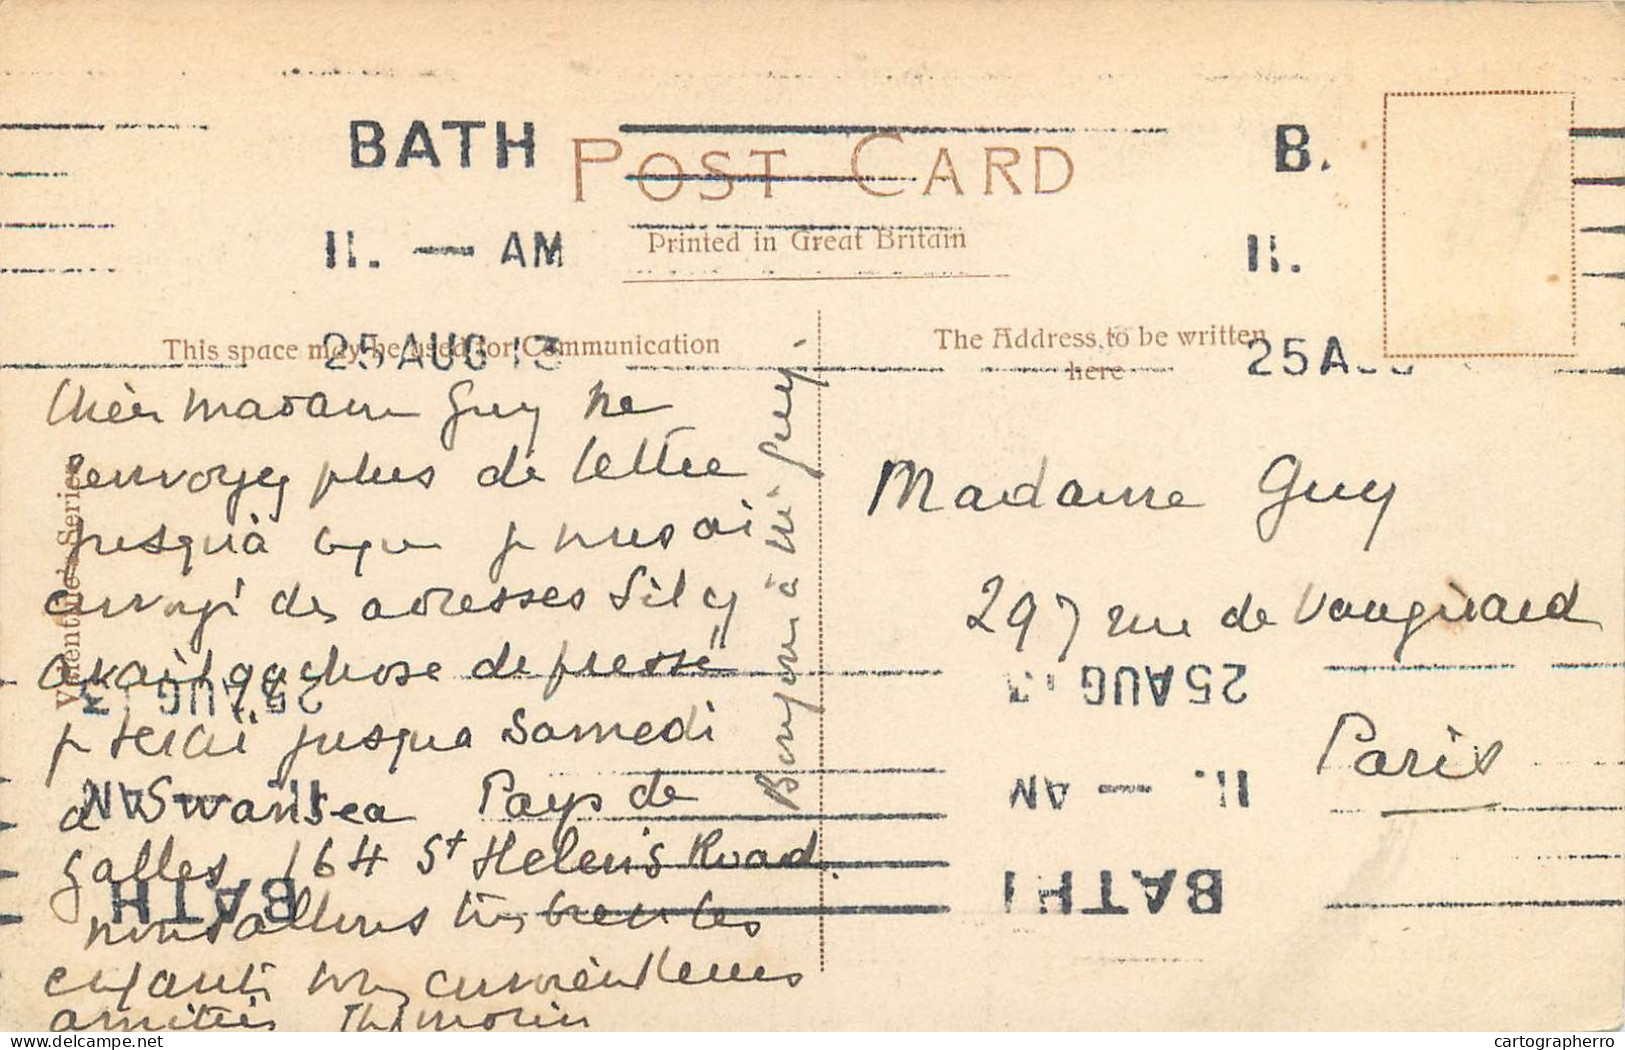 BATH
B.
POST CARD
11. — AM
Printed in Great Britain
11.
25 AUG 13
25 A
This space may be used for Communication
The Address to be written
here
Valentine's Series
Chère Madame Guy ne
renvoyez plus de lettre
jusqu'à ce que je vous ai
envoyé des adresses s'il y
avait qq chose de pressé
je serai jusqua Samedi
a Swansea Pays de
Galles 164 St Helens Road
nous allons très bien les
enfants vous envoient leurs
amitiés Th. Morin
Bonjour à Mr Guy.
Madame Guy
297 rue de Vaugirard
Paris
25 AUG 13
11. — AM
BATH
25 AUG 13
11. — AM
BATH
cartographerro